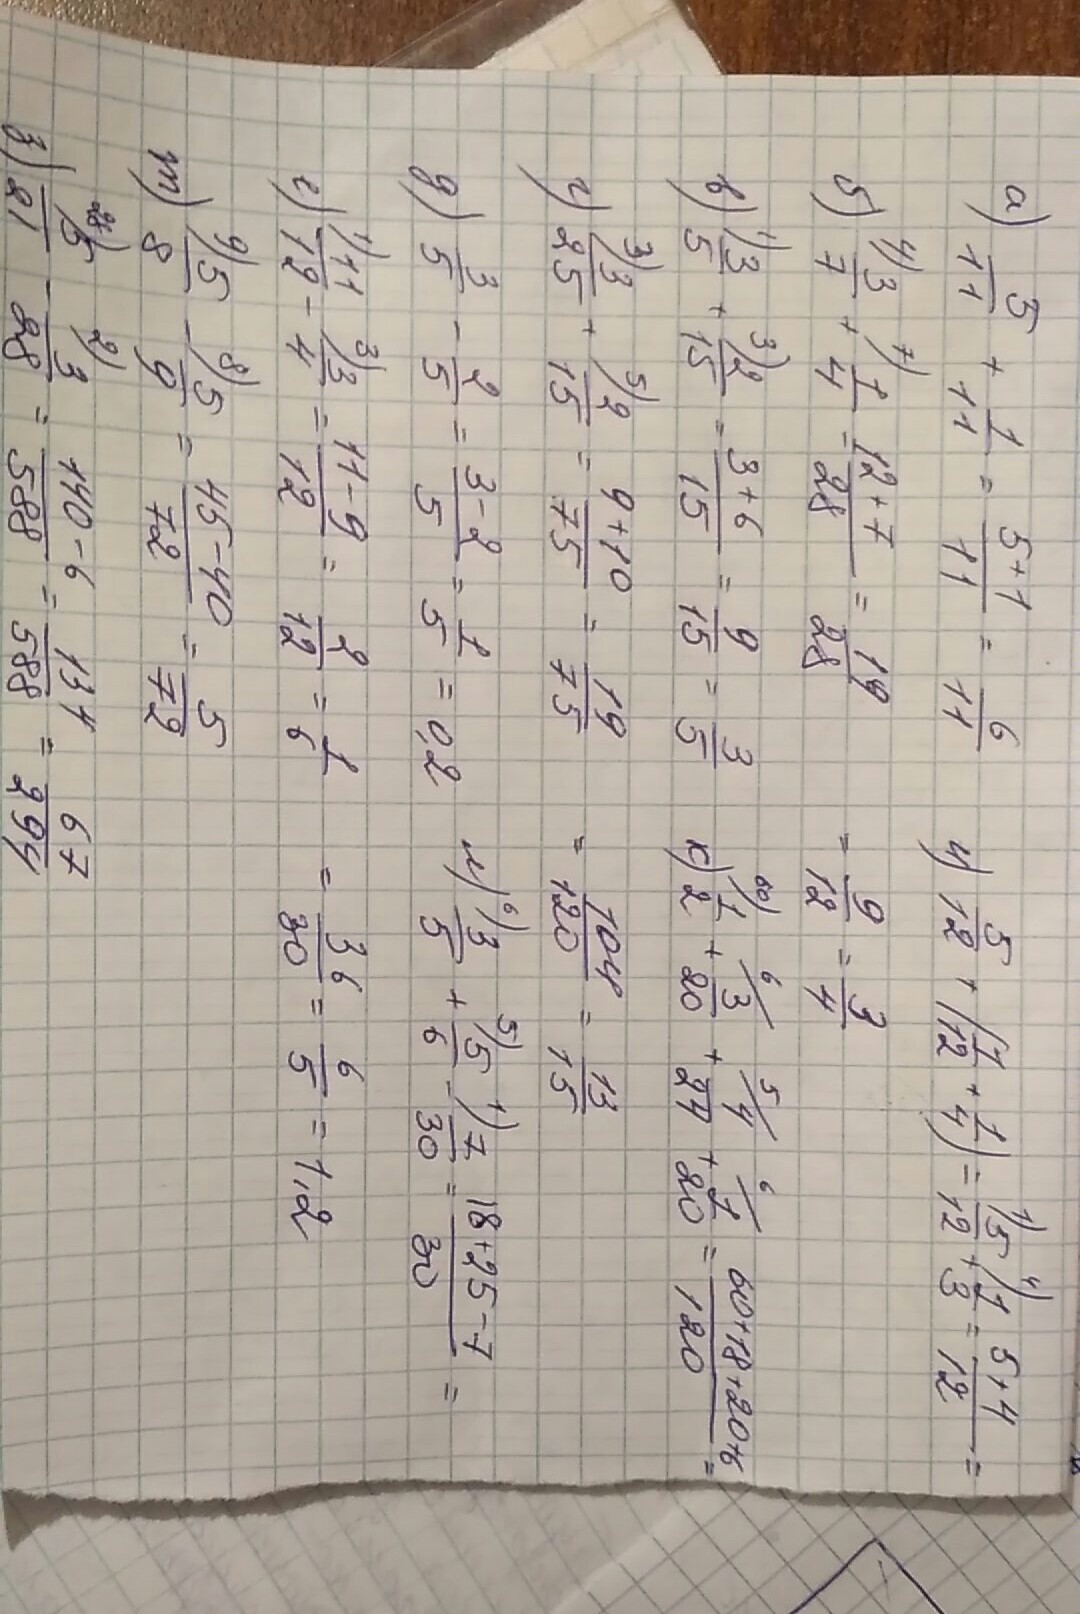 а) 5/11 + 1/11 = 5+1/11 = 6/11
б) 4)3/7 + 7)1/4 = 12+7/28 = 19/28
в) 1)3/5 + 3)2/15 = 3+6/15 = 9/15 = 3/5
г) 3)3/25 + 5)2/15 = 9+10/75 = 19/75
д) 3/5 - 2/5 = 3-2/5 = 1/5 = 0,2
е) 1)11/12 - 3)3/4 = 11-9/12 = 2/12 = 1/6
ж) 9)5/8 - 8)5/9 = 45-40/72 = 5/72
з) 28)5/21 - 2)3/28 = 140-6/588 = 134/588 = 67/294
и) 5/12 + (1/12 + 1/4) = 1)5/12 + 4)1/3 = 5+4/12 =
= 9/12 = 3/4
к) 60)1/2 + 6/3/20 + 5/4/24 + 6/1/20 = 60+18+20+6/120 =
= 104/120 = 13/15
л) 6)3/5 + 5)5/6 - 1)7/30 = 18+25-7/30 =
= 36/30 = 6/5 = 1,2